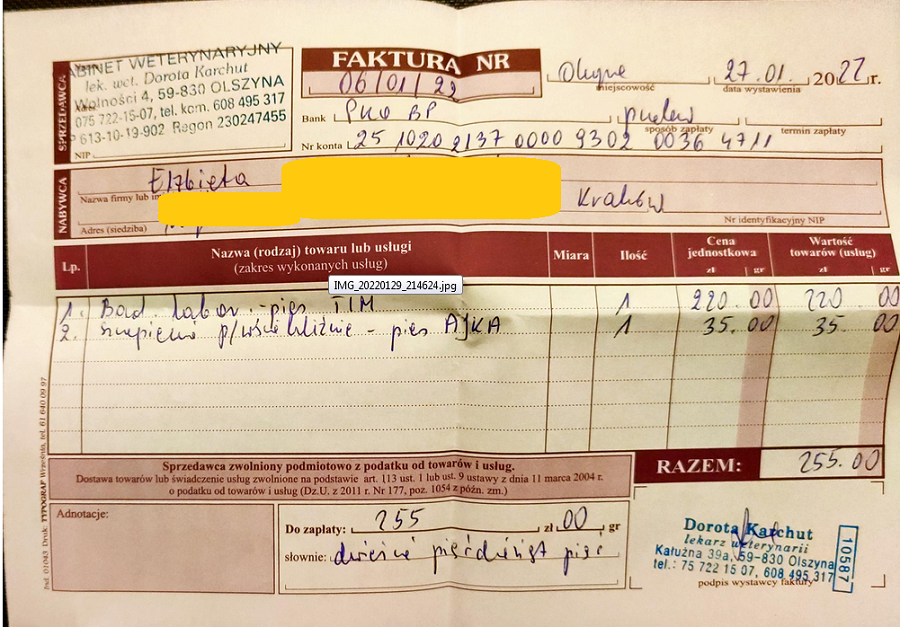 GABINET WETERYNARYJNY
lek. wet. Dorota Karchut
Wolności 4, 59-830 OLSZYNA
075 722-15-07, tel. kom. 608 495 317
P 613-10-19-902 Regon 230247455
SPRZEDAWCA
NIP
FAKTURA NR
06/01/22
miejscowość
27.01. 2022 r.
data wystawienia
Bank PKO BP
sposób zapłaty
termin zapłaty
Nr konta 25 1020 2137 0000 9302 0036 4711
NABYWCA
Elżbieta
Nazwa firmy lub
Kraków
Adres (siedziba)
Nr identyfikacyjny NIP
Lp. Nazwa (rodzaj) towaru lub usługi Miara Ilość Cena jednostkowa Wartość towarów (usług)
(zakres wykonanych usług) zł gr zł gr
IMG_20220129_214624.jpg
1. Bad. labor. - pies TIM 1 220.00 220 00
2. Szczepienie p/wściekliźnie - pies AJKA 1 35.00 35. 00
Sprzedawca zwolniony podmiotowo z podatku od towarów i usług.
Dostawa towarów lub świadczenie usług zwolnione na podstawie art. 113 ust. 1 lub ust. 9 ustawy z dnia 11 marca 2004 r.
o podatku od towarów i usług (Dz.U. z 2011 r. Nr 177, poz. 1054 z późn. zm.)
RAZEM: 255.00
Adnotacje:
Do zapłaty: 255 zł 00 gr
słownie: dwieście pięćdziesiąt pięć
Dorota Karchut
lekarz weterynarii
Kałużna 39a, 59-830 Olszyna
tel.: 75 722 15 07, 608 495 317
10587
podpis wystawcy faktury
Pod. 01043 Druk: TYPOGRAF Września, tel. 61 640 09 97